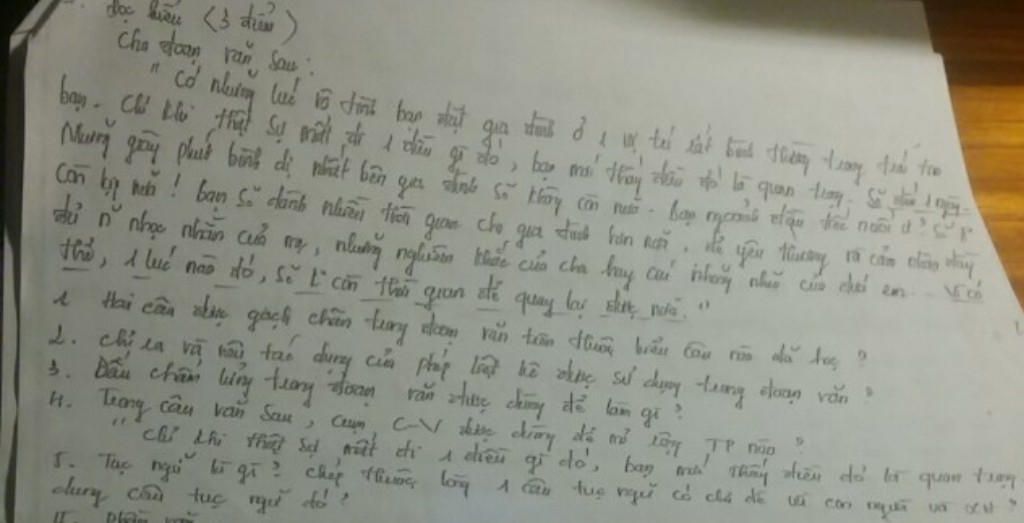 đọc hiểu (3 điểm)
Cho đoạn văn sau:
"Có những lúc vô tình bạn đặt gia đình ở 1 vị trí rất bình thường trong trái tim
bạn. Chỉ khi thật sự mất đi 1 điều gì đó, bạn mới thấy điều đó là quan trọng. Sẽ đến 1 ngày.
Những giây phút bình dị nhất bên gia đình sẽ không còn nữa. Bạn ngoảnh đầu tiếc nuối ư? Sẽ k
còn kịp nữa! Bạn sẽ dành nhiều thời gian cho gia đình hơn nữa, để yêu thương và cảm nhận đầy
đủ n~ nhọc nhằn của mẹ, những nghiêm khắc của cha hay cái nhõng nhẽo của đứa em... Vì có
thể, 1 lúc nào đó, sẽ k còn thời gian để quay lại được nữa."
1 Hai câu được gạch chân trong đoạn văn trên thuộc kiểu câu nào đã học?
2. Chỉ ra và nêu tác dụng của phép liệt kê được sử dụng trong đoạn văn?
3. Dấu chấm lửng trong đoạn văn được dùng để làm gì?
4. Trong câu văn sau, cụm C-V được dùng để mở rộng TP nào?
"Chỉ khi thật sự mất đi 1 điều gì đó, bạn mới thấy điều đó là quan trọng
5. Tục ngữ là gì? Chép thuộc lòng 1 câu tục ngữ có chủ đề về con người và XH?
dung câu tục ngữ đó?
II. phần văn